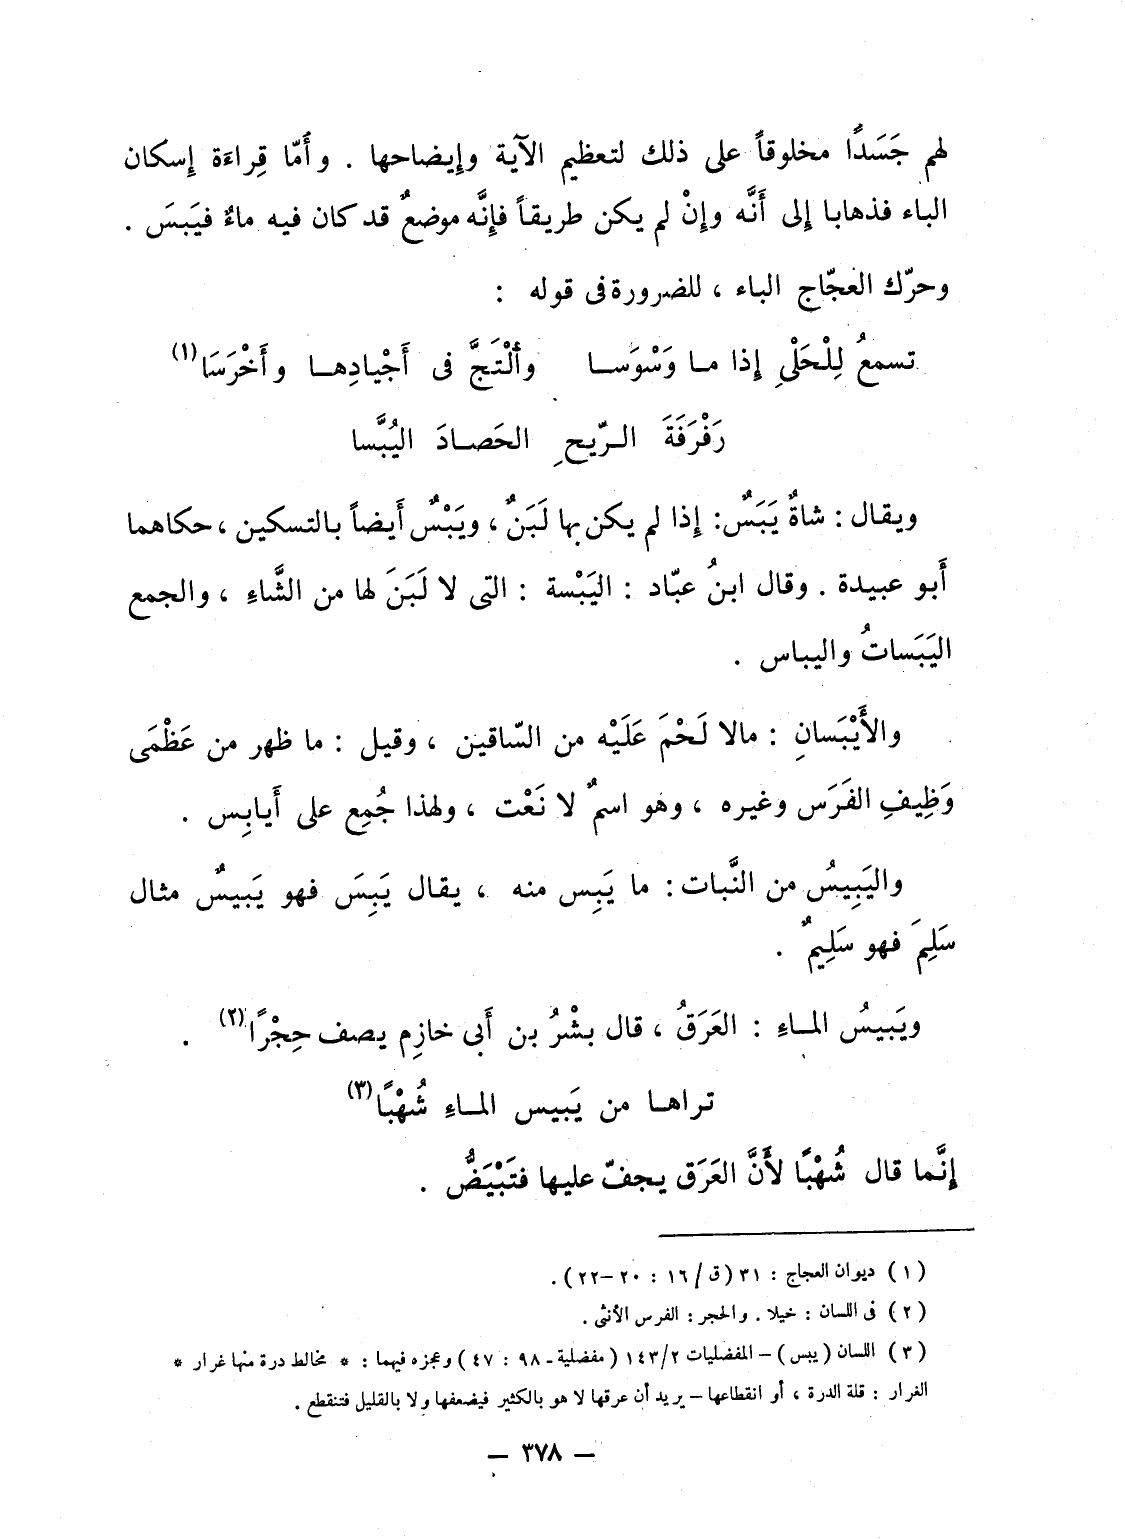 لهم جَسَدًا مخلوقاً على ذلك لتعظيم الآية وإيضاحها . وأَمّا قِراءة إسكان
الباء فذهابا إلى أَنَّه وإنْ لم يكن طريقاً فإنَّه موضعٌ قد كان فيه ماءٌ فيَبسَ .
وحرّك العجّاج الباء ، للضرورة فى قوله :
تسمعُ لِلْحَلْىِ إذا مـا وَسْوَسـا وٱلْتَجَّ فى أَجْيادِهـا وأَخْرَسَا(١)
رَفْرَفَةَ الـرّيحِ الحَصـادَ اليُبَّسا
ويقال : شاةٌ يَبَسٌ: إذا لم يكن بها لَبَنٌ ، ويَبْسٌ أيضاً بالتسكين ، حكاهما
أَبو عبيدة . وقال ابنُ عبّاد : اليَبْسة : التى لا لَبَنَ لها من الشَّاءِ ، والجمع
اليَبَساتُ واليباس .
والأَيْبَسانِ : مالا لَحْمَ عَلَيْه من السّاقين ، وقيل : ما ظهر من عَظْمَى
وَظِيفِ الفَرَس وغيره ، وهو اسمٌ لا نَعْت ، ولهذا جُمِع على أَيابِس .
واليَبِيسُ من النَّبات : ما يَبِس منه ، يقال يَبِسَ فهو يَبيسٌ مثال
سَلِمَ فهو سَلِيمٌ .
ويَبيسُ المـاءِ : العَرَقُ ، قال بشْرُ بن أَبى خازِم يصف حِجْرًا(٢) .
تراهـا من يَبيس المـاءِ شُهْبًا(٣)
إنَّما قال شُهْبًا لأَنَّ العَرَق يجفّ عليها فتَبْيَضُّ .
(١) ديوان العجاج : ٣١ (ق/١٦ : ٢٠-٢٢) .
(٢) فى اللسان : خيلا . والحجر : الفرس الأنثى .
(٣) اللسان (يبس) – المفضليات ١٤٣/٢ (مفضلية ـ ٩٨ : ٤٧) وعجزه فيهما : * مخالط درة منها غرار *
الغرار : قلة الدرة ، أو انقطاعها – يريد أن عرقها لا هو بالكثير فيضعفها ولا بالقليل فتنقطع .
— ٣٧٨ —